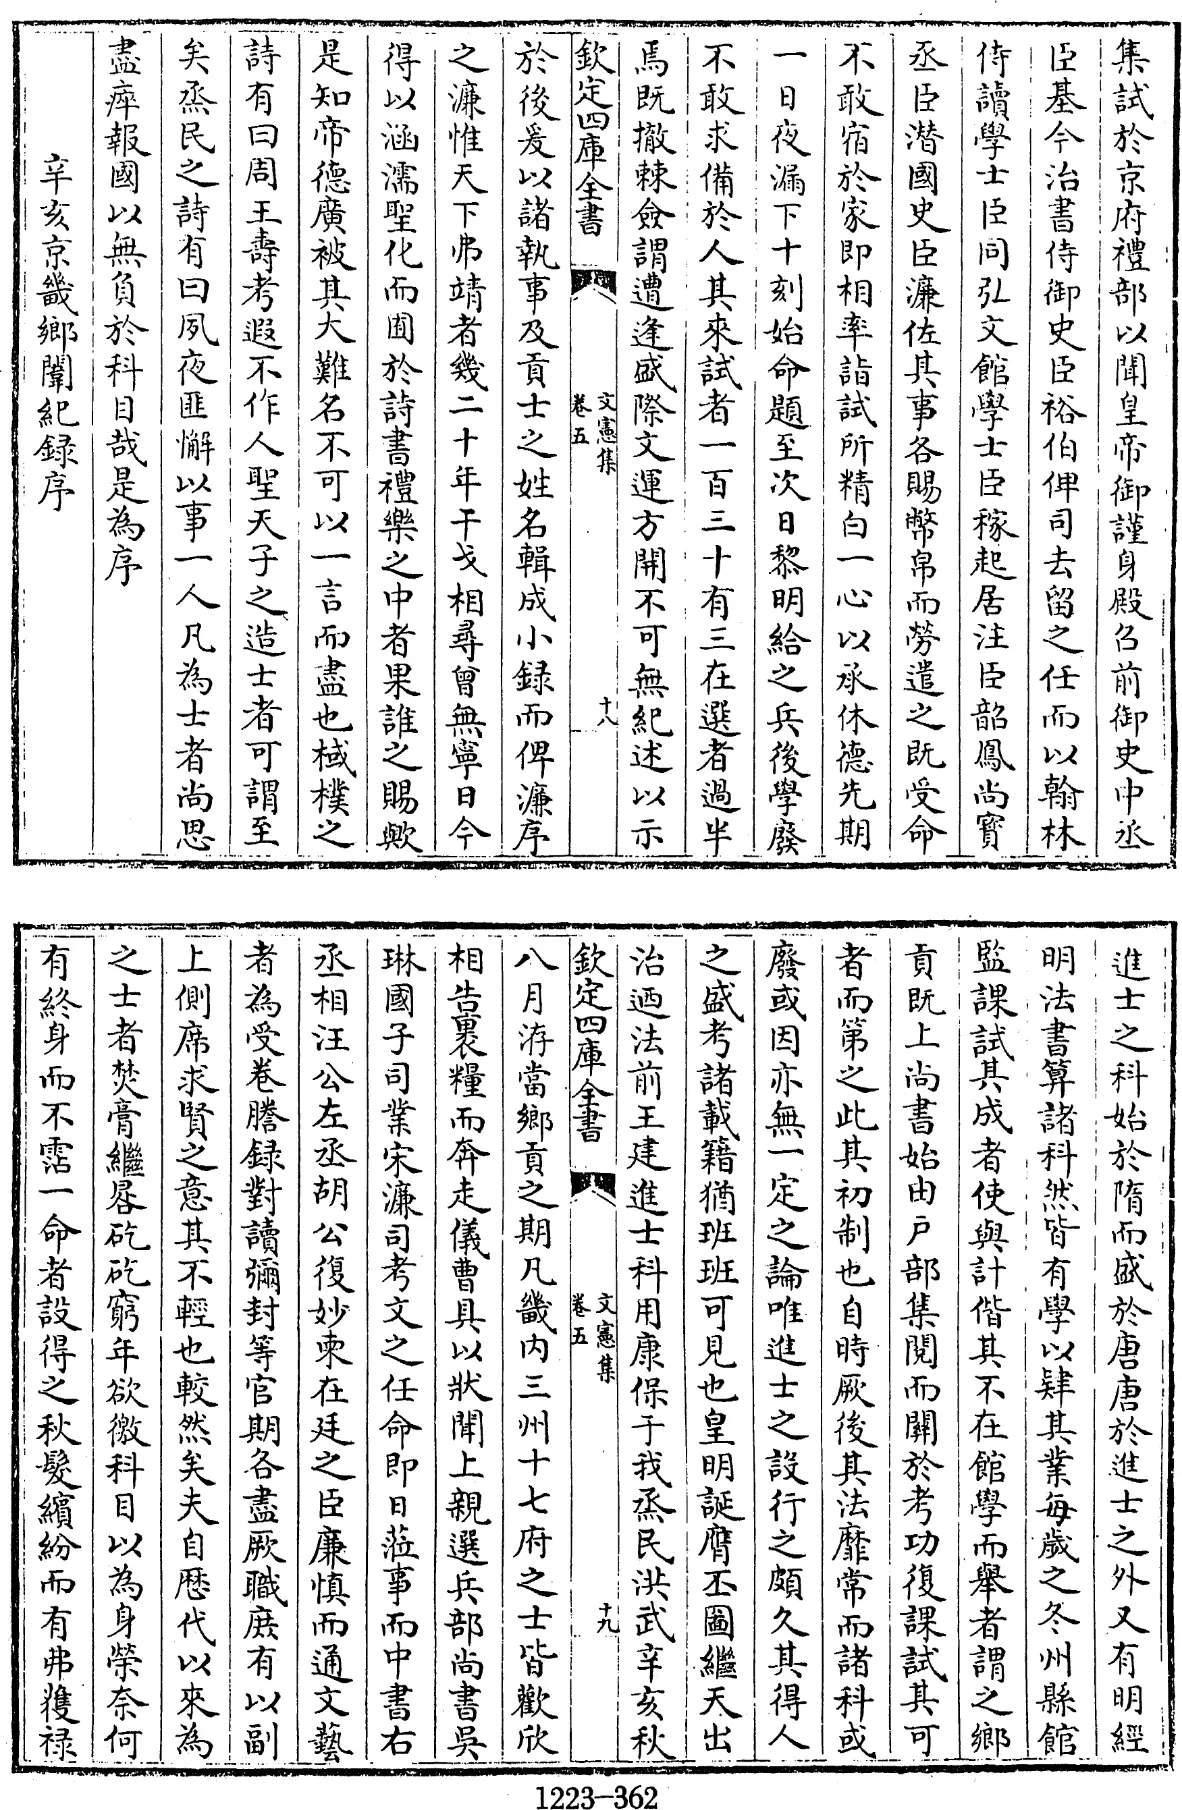 集試於京府禮部以聞皇帝御謹身殿召前御史中丞
臣基今治書侍御史臣裕伯俾司去留之任而以翰林
侍讀學士臣同弘文館學士臣稼起居注臣韶鳳尚寶
丞臣潛國史臣濂佐其事各賜幣帛而勞遣之既受命
不敢宿於家即相率詣試所精白一心以承休德先期
一日夜漏下十刻始命題至次日黎明給之兵後學廢
不敢求備於人其來試者一百三十有三在選者過半
焉既撤棘僉謂遭逢盛際文運方開不可無紀述以示
欽定四庫全書
文憲集
卷五
十八
於後爰以諸執事及貢士之姓名輯成小録而俾濂序
之濂惟天下弗靖者幾二十年干戈相尋曾無寧日今
得以涵濡聖化而囿於詩書禮樂之中者果誰之賜歟
是知帝德廣被其大難名不可以一言而盡也棫樸之
詩有曰周王壽考遐不作人聖天子之造士者可謂至
矣烝民之詩有曰夙夜匪懈以事一人凡為士者尚思
盡瘁報國以無負於科目哉是為序
辛亥京畿鄉闈紀録序
進士之科始於隋而盛於唐唐於進士之外又有明經
明法書算諸科然皆有學以肄其業每歲之冬州縣館
監課試其成者使與計偕其不在館學而舉者謂之鄉
貢既上尚書始由戶部集閱而關於考功復課試其可
者而第之此其初制也自時厥後其法靡常而諸科或
廢或因亦無一定之論唯進士之設行之頗久其得人
之盛考諸載籍猶班班可見也皇明誕膺丕圖繼天出
治迺法前王建進士科用康保于我烝民洪武辛亥秋
欽定四庫全書
文憲集
卷五
十九
八月洊當鄉貢之期凡畿内三州十七府之士皆歡欣
相告裹糧而奔走儀曹具以狀聞上親選兵部尚書吳
琳國子司業宋濂司考文之任命即日蒞事而中書右
丞相汪公左丞胡公復妙柬在廷之臣廉慎而通文藝
者為受卷謄録對讀彌封等官期各盡厥職庶有以副
上側席求賢之意其不輕也較然矣夫自歴代以來為
之士者焚膏繼晷矻矻窮年欲徼科目以為身榮奈何
有終身而不霑一命者設得之秋髮繽紛而有弗獲禄
1223-362